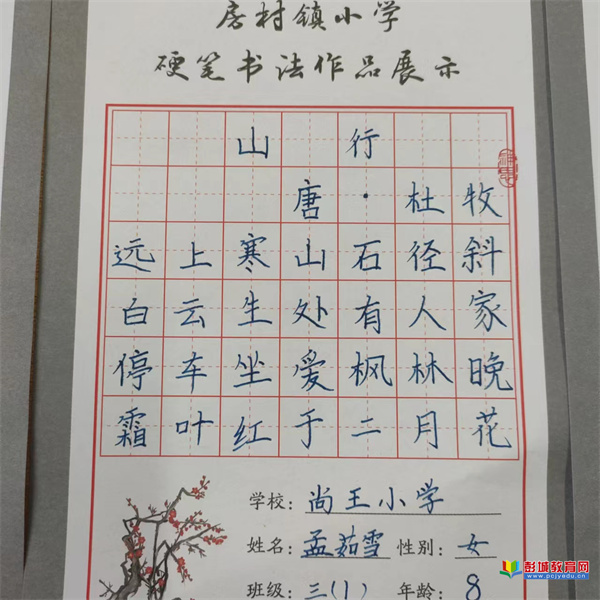 房村镇小学
硬笔书法作品展示
山行
唐·杜牧
远上寒山石径斜
白云生处有人家
停车坐爱枫林晚
霜叶红于二月花
学校：尚王小学
姓名：孟茹雪 性别：女
班级：三(1) 年龄：8
彭城教育网
www.pcjyedu.cn